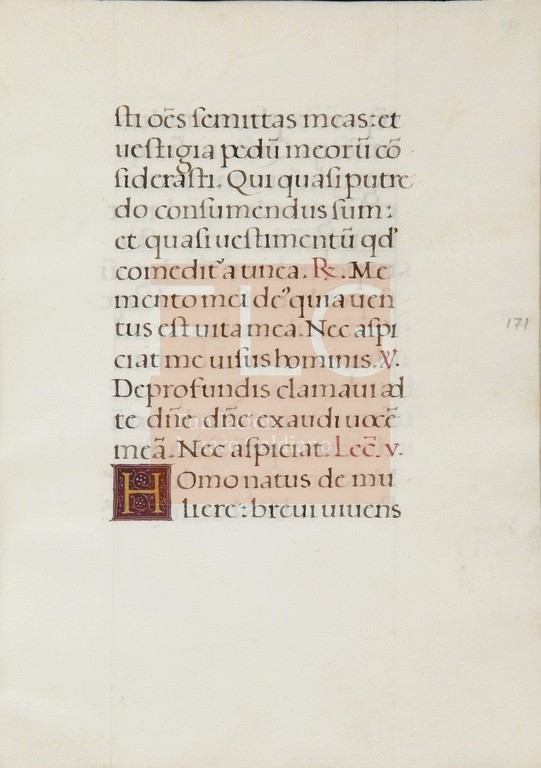 ſti oẽs ſemittas meas: et
ueſtigia pedũ meorũ cõ
ſideraſti. Qui quaſi putre
do conſumendus ſum:
et quaſi ueſtimentũ qd'
comedit᷑ a tinea. ℞. Me
mento mei deꝰ quia uen
tus eſt uita mea. Nec aſpi
ciat me uiſus hominis. ℣.
De profundis clamaui ad
te dñe dñe exaudi uocẽ
meã. Nec aſpiciat. Lec̃. v.
Homo natus de mu
liere: breui uiuens
171
FLC